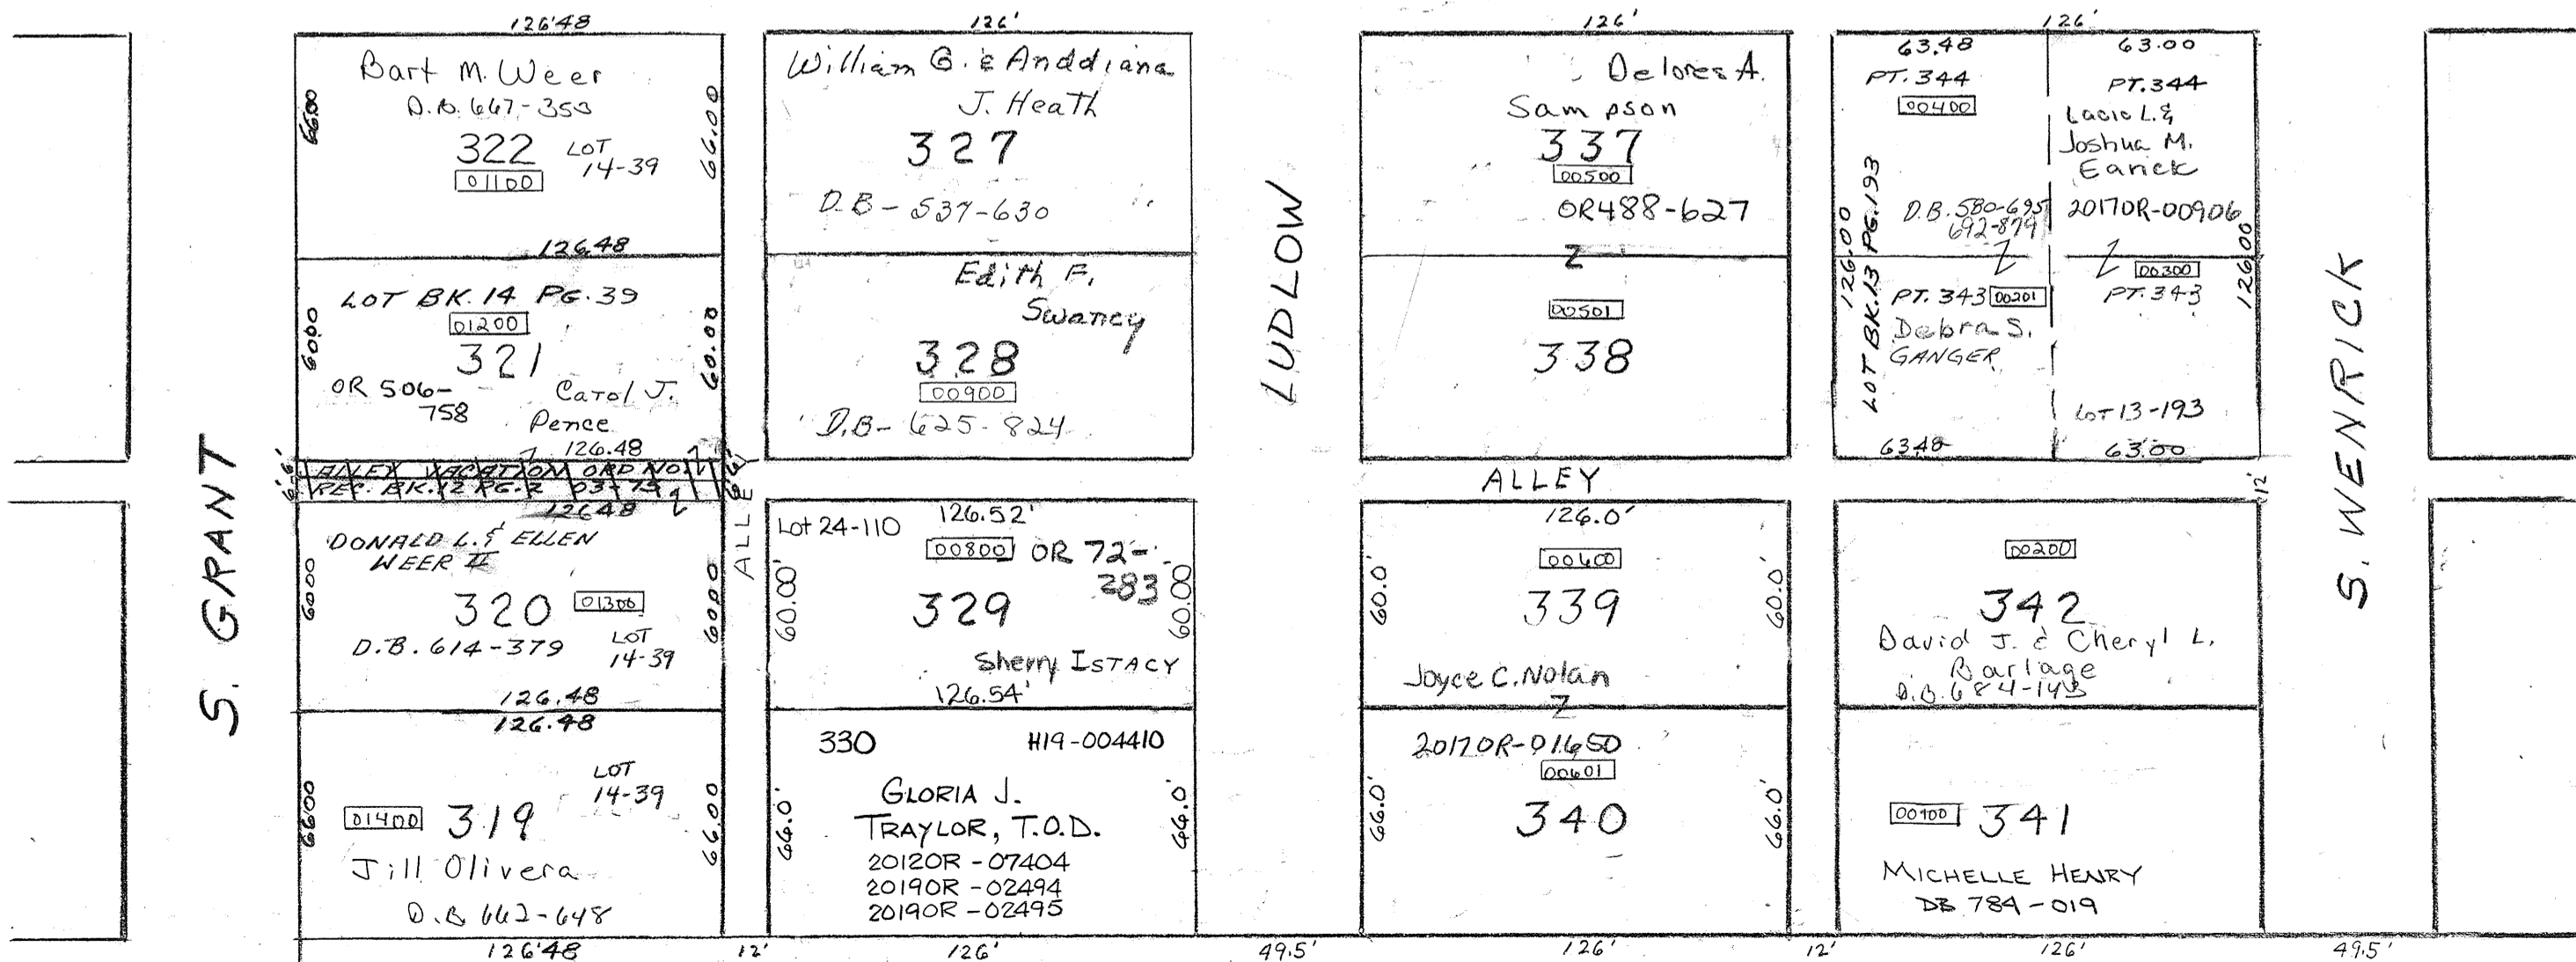 126'48
Bart M. Weer
D.B. 667-353
322
LOT
14-39
01100
66.00
66.00
126.48
LOT BK. 14 PG. 39
01200
321
OR 506-
758
Carol J.
Pence
60.00
60.00
126.48
6'
6'
6'
6'
ALLEY VACATION ORD NO.
REC. BK. 12 PG. 2 03-75
126.48
DONALD L. & ELLEN
WEER II
320
01300
D.B. 614-379
LOT
14-39
60.00
60.00
126.48
126.48
LOT
14-39
01400
319
Jill Olivera
D.B 662-648
66.00
66.00
126'48
S. GRANT
ALLEY
12'
126'
William G. & Anddiana
J. Heath
327
D.B - 537-630
Edith F.
Swaney
328
00900
D.B- 625-824
Lot 24-110
126.52'
00800
OR 72-
283
329
60.00'
60.00'
Sherry ISTACY
126.54'
330
H19-004410
GLORIA J.
TRAYLOR, T.O.D.
20120R-07404
20190R-02494
20190R-02495
66.0'
66.0'
126'
LUDLOW
49.5'
126'
Delores A.
Sampson
337
00500
OR488-627
Z
00501
338
ALLEY
126.0'
00600
339
60.0'
60.0'
Joyce C. Nolan
Z
20170R-01650
00601
340
66.0'
66.0'
126'
12'
126'
63.48
63.00
PT. 344
00400
PT. 344
Lacie L. &
Joshua M.
Earick
D.B. 580-695
692-879
20170R-00906
126.00
LOT BK. 13 PG. 193
126.00
PT. 343
00201
Debra S.
GANGER
00300
PT. 343
LOT 13-193
63.48
63.00
12'
00200
342
David J. & Cheryl L.
Barlage
D.B. 684-143
00100
341
MICHELLE HENRY
DB 784-019
126'
S. WENRICK
49.5'